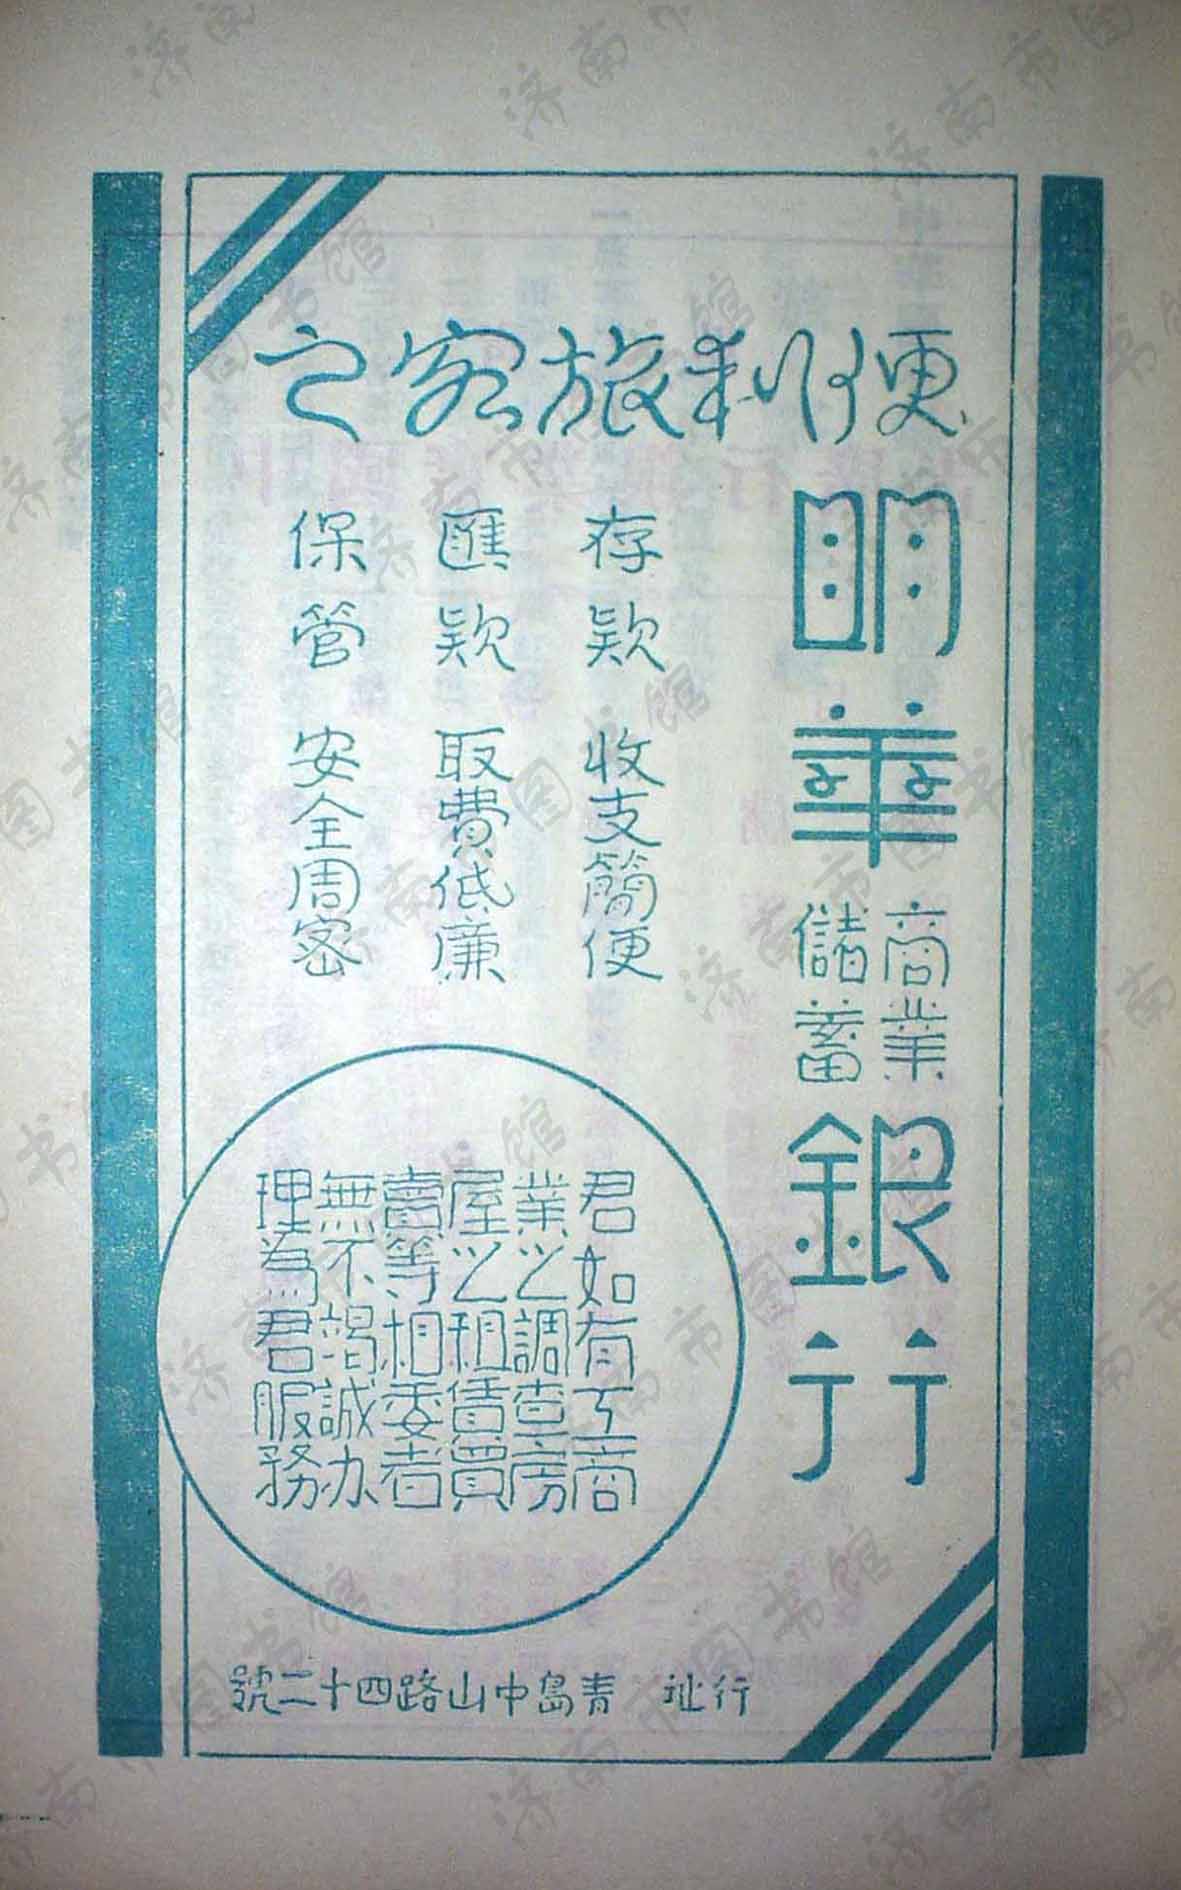 便利旅客之
明華商業儲蓄銀行
存款 收支簡便
匯款 取費低廉
保管 安全周密
君如有工商
業之調查房
屋之租賃買
賣等相委者
無不竭誠办
理為君服務
行址 青島中山路四十二號
济南市图书馆